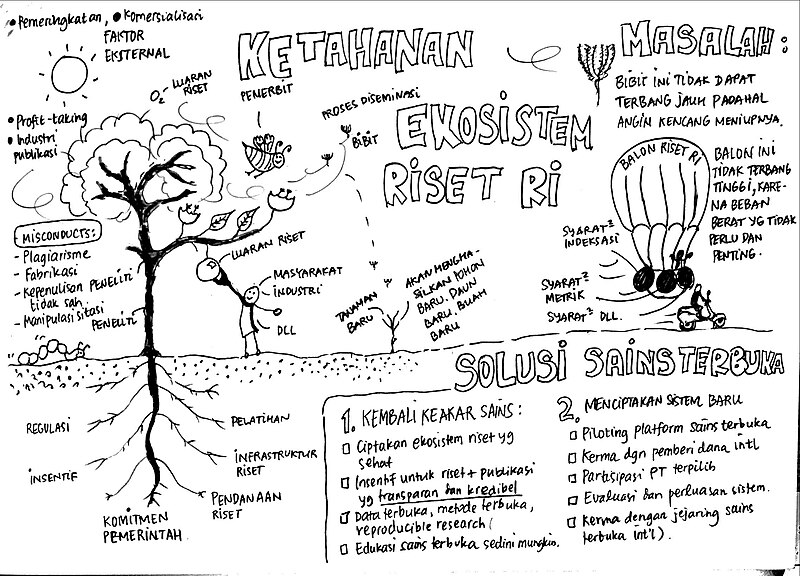 • Pemeringkatan, • Komersialisasi
FAKTOR
EKSTERNAL
• Profit-taking
• Industri
publikasi
O₂
LUARAN
RISET
KETAHANAN
EKOSISTEM
RISET RI
PENERBIT
PROSES DISEMINASI
BIBIT
MASALAH:
BIBIT INI TIDAK DAPAT
TERBANG JAUH PADAHAL
ANGIN KENCANG MENIUPNYA.
BALON RISET RI
BALON INI
TIDAK TERBANG
TINGGI, KARE-
NA BEBAN
BERAT YG TIDAK
PERLU DAN
PENTING.
SYARAT²
INDEKSASI
SYARAT²
METRIK
SYARAT² DLL.
MISCONDUCTS:
- Plagiarisme
- Fabrikasi
- Kepenulisan
tidak sah
- Manipulasi sitasi
PENELITI
PENELITI
LUARAN RISET
MASYARAKAT
INDUSTRI
DLL
TANAMAN
BARU
AKAN MENGHA-
SILKAN POHON
BARU, DAUN
BARU, BUAH
BARU
REGULASI
INSENTIF
KOMITMEN
PEMERINTAH
PELATIHAN
INFRASTRUKTUR
RISET
PENDANAAN
RISET
SOLUSI SAINS TERBUKA
1. KEMBALI KEAKAR SAINS:
Ciptakan ekosistem riset yg
sehat
Insentif untuk riset + publikasi
yg transparan dan kredibel
Data terbuka, metode terbuka,
reproducible research
Edukasi sains terbuka sedini mungkin.
2. MENCIPTAKAN SISTEM BARU
Piloting platform sains terbuka
Kerma dgn pemberi dana intl
Partisipasi PT terpilih
Evaluasi dan perluasan sistem.
Kerma dengan jejaring sains
terbuka int'l).